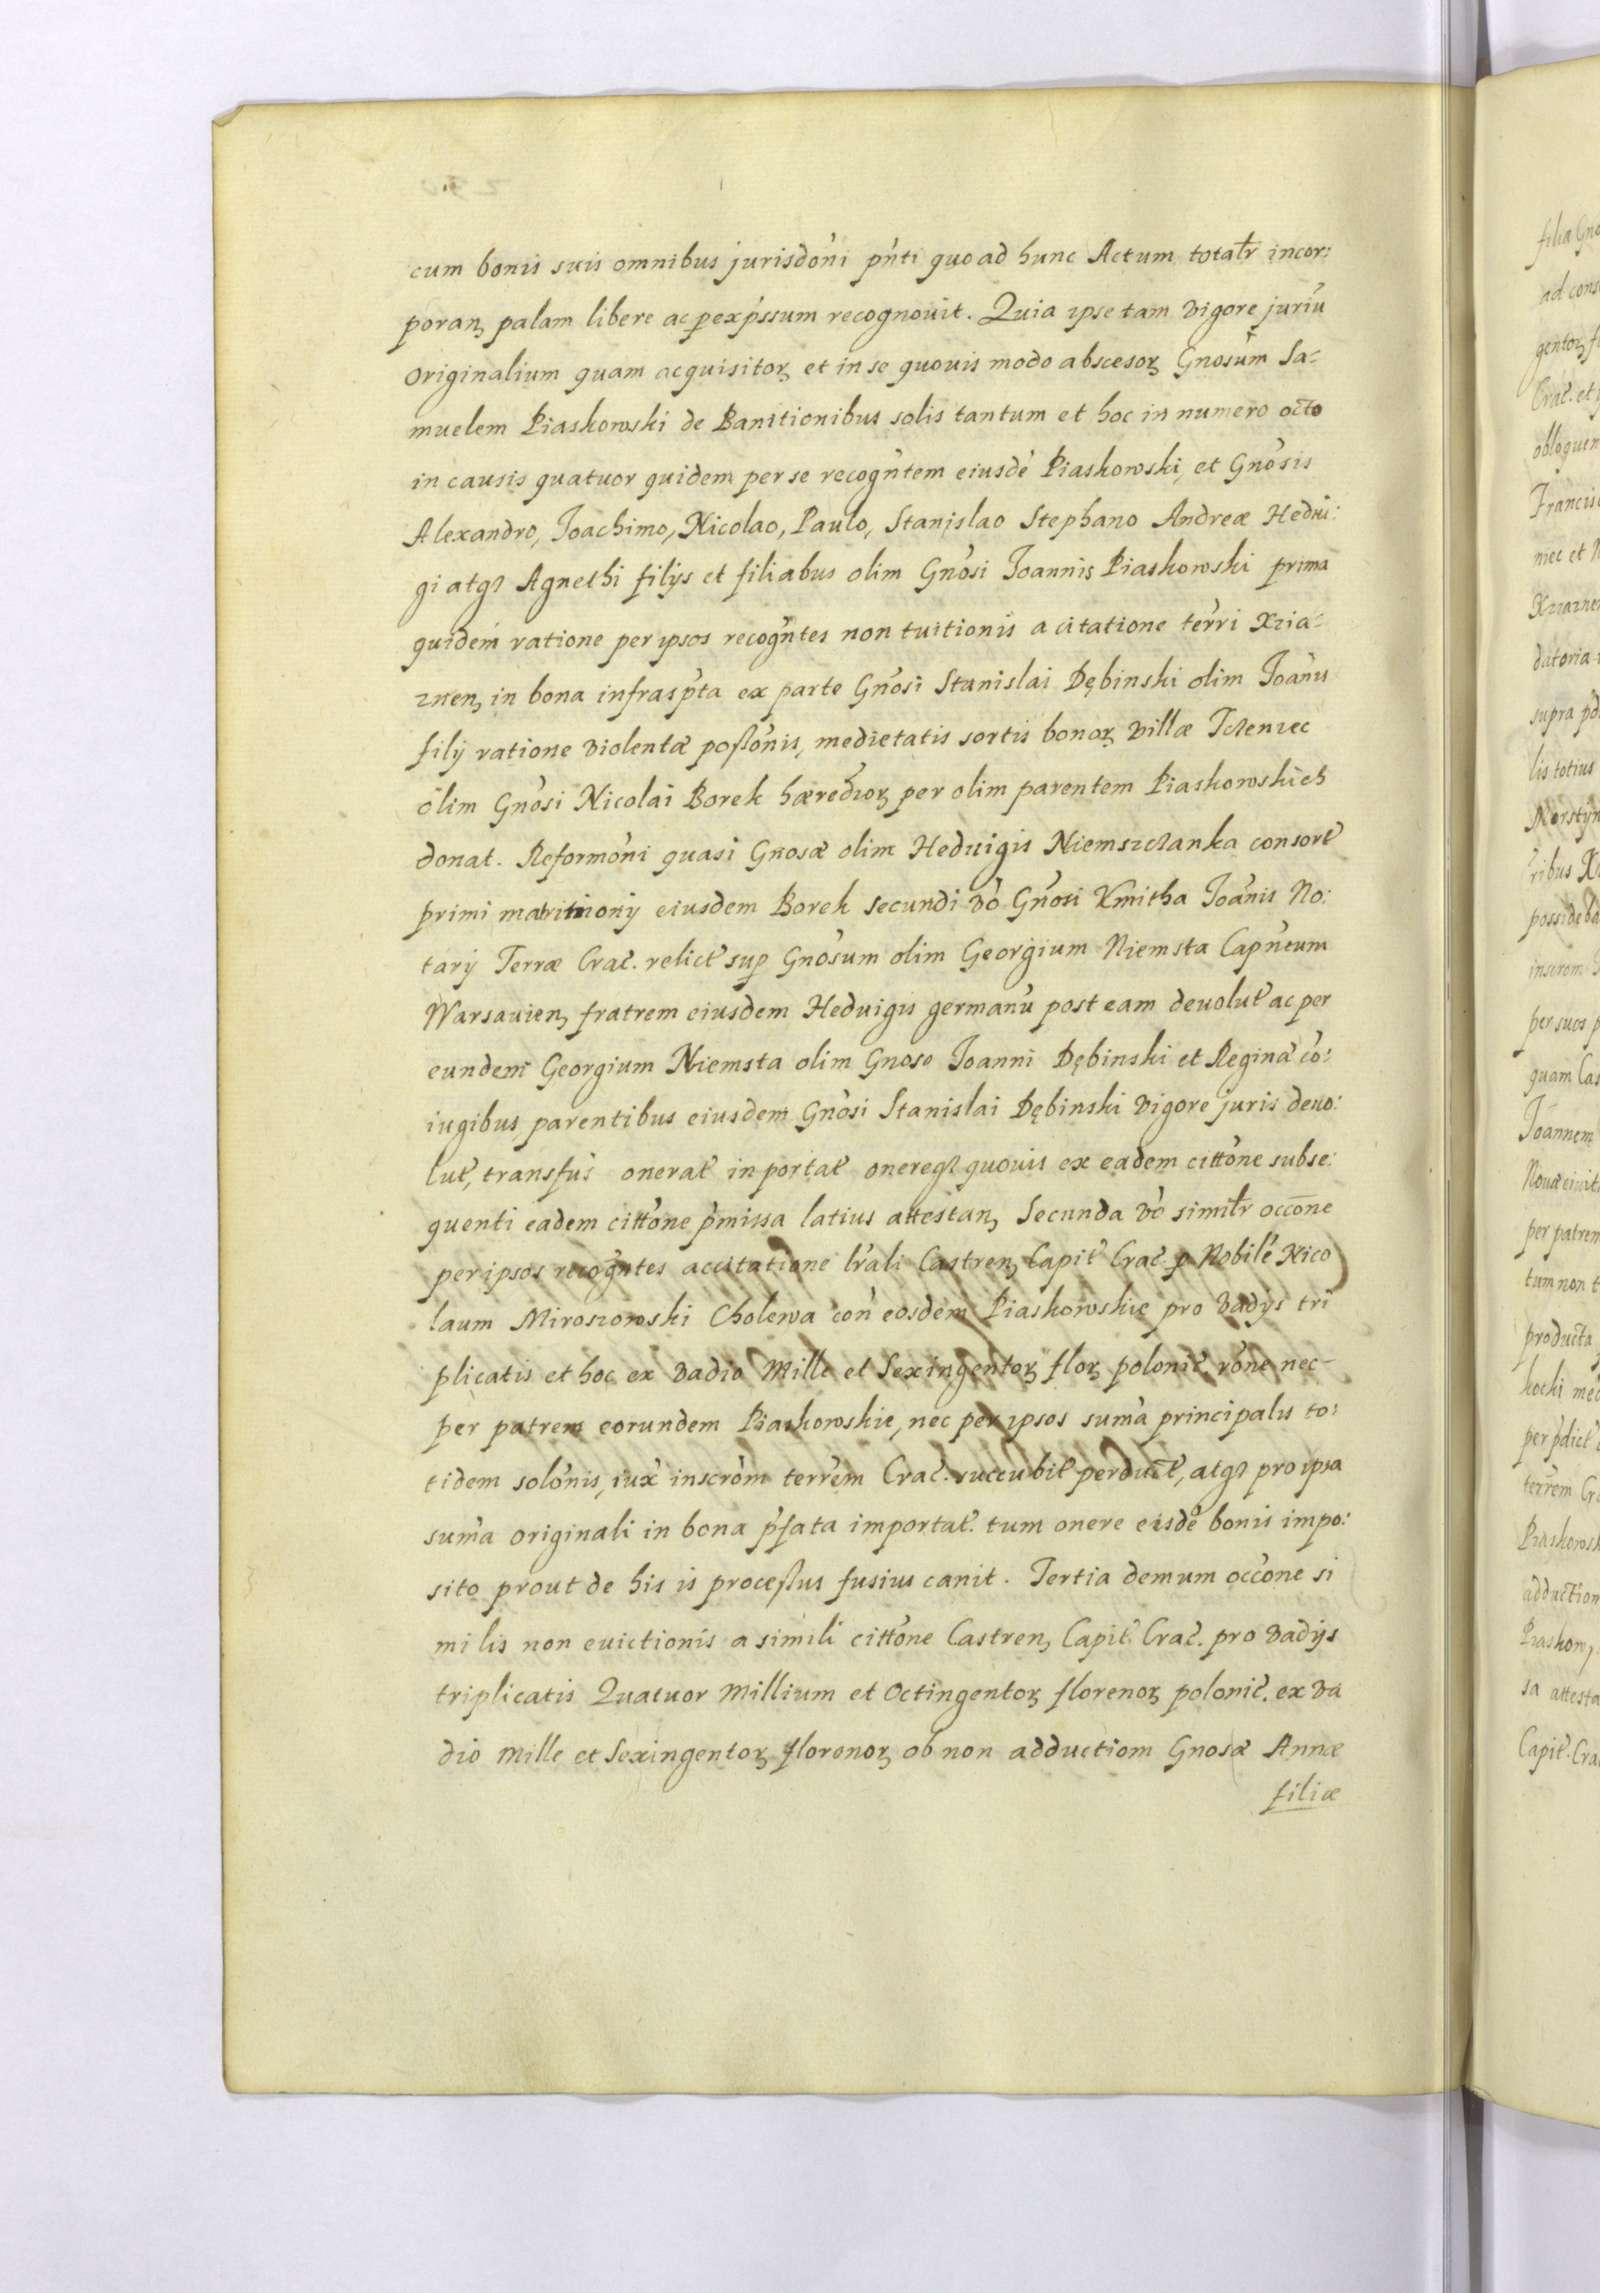 cum bonis suis omnibus jurisdōni pn̄ti quo ad hunc Actum totalr̄ incor:
poran, palam libere ac per exp̄ssum recognovit. Quia ipse tam vigore juriū
originalium quam acquisitoꝝ et in se quovis modo abscesoꝝ Gn̄osum Sa-
muelem Piaskowski de Banitionibus solis tantum et hoc in numero octo
in causis quatuor quidem per se recogn̄tem eiusdē Piaskowski, et Gn̄osis
Alexandro, Joachimo, Nicolao, Paulo, Stanislao Stephano Andreæ Hedvi:
gi atqꝫ Agnethi filijs et filiabus olim Gn̄osi Joannis Piaskowski prima
quidem ratione per ipsos recogn̄tes non tuitionis a citatione terr̄i Xzia-
znen, in bona infrasp̄ta ex parte Gn̄osi Stanislai Dębinski olim Joān̄is
filij ratione violentæ possōnis, medietatis sortis bonoꝝ villæ
olim Gn̄osi Nicolai Borek hæredꝝ per olim parentem Piaskowskich
donat. Reformōni quasi Gnosæ olim Hedvigis Niemszczanka consort̄
primi matrimonij eiusdem Borek secundi vō Gn̄osi Kmitha Joānis No:
tarij Terræ Crac̄. relict̄ sup Gn̄osum olim Georgium Niemsta Capn̄eum
Warsavien, fratrem eiusdem Hedvigis germanū post eam devolut̄ ac per
eundem Georgium Niemsta olim Gnoso Joanni Dębinski et Reginæ cō:
iugibus parentibus eiusdem Gn̄osi Stanislai Dębinski vigore juris devo:
lut̄, transfus̄ onerat̄ in portat̄ onereqꝫ quovis ex eadem citt̄one subse:
quenti eadem citt̄one p̄missa latius attestan, Secunda vō similr̄ occōne
per ipsos recogn̄tes accitatione lr̄ali Castren, Capit̄ Crac̄ p Nobilē Nico
laum Miroszowski Cholewa con̄ eosdem Piaskowskie pro vadijs tri
plicatis et hoc ex vadio Mille et Sexingentoꝝ floꝝ polonic̄. rōne nec-
per patrem eorundem Piaskowskie, nec per ipsos sum̄a principalis to:
tidem solōnis, iux̄ inscrōm terr̄em Crac̄. succubit̄ perduct̄, atqꝫ pro ipsa
sum̄a originali in bona p̄fata importat̄. tum onere eisdē bonis impo:
sito prout de his is processus fusius canit. Tertia demum occōne si
milis non evictionis a simili citt̄one Castren, Capit̄. Crac̄. pro vadijs
triplicatis Quatuor Millium et Octingentoꝝ florenoꝝ polonic̄. ex va
dio Mille et Sexingentoꝝ florenoꝝ ob non adductiom Gnosæ Annæ
filiæ